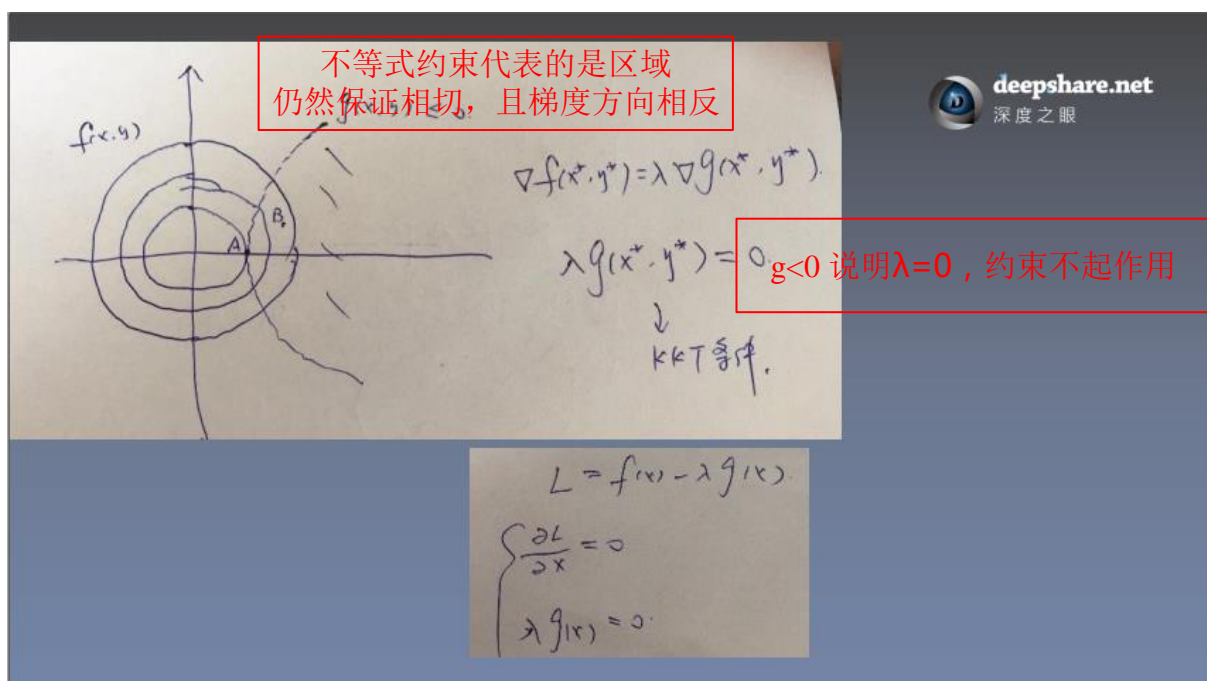 不等式约束代表的是区域
仍然保证相切，且梯度方向相反
deepshare.net
深度之眼
f(x,y)
≤ 0.
∇f(x*,y*)=λ∇g(x*,y*).
B.
A
λg(x*,y*)=0.
g<0 说明λ=0，约束不起作用
↓
KKT条件.
L = f(x) - λg(x).
∂L/∂x = 0
λg(x) = 0.